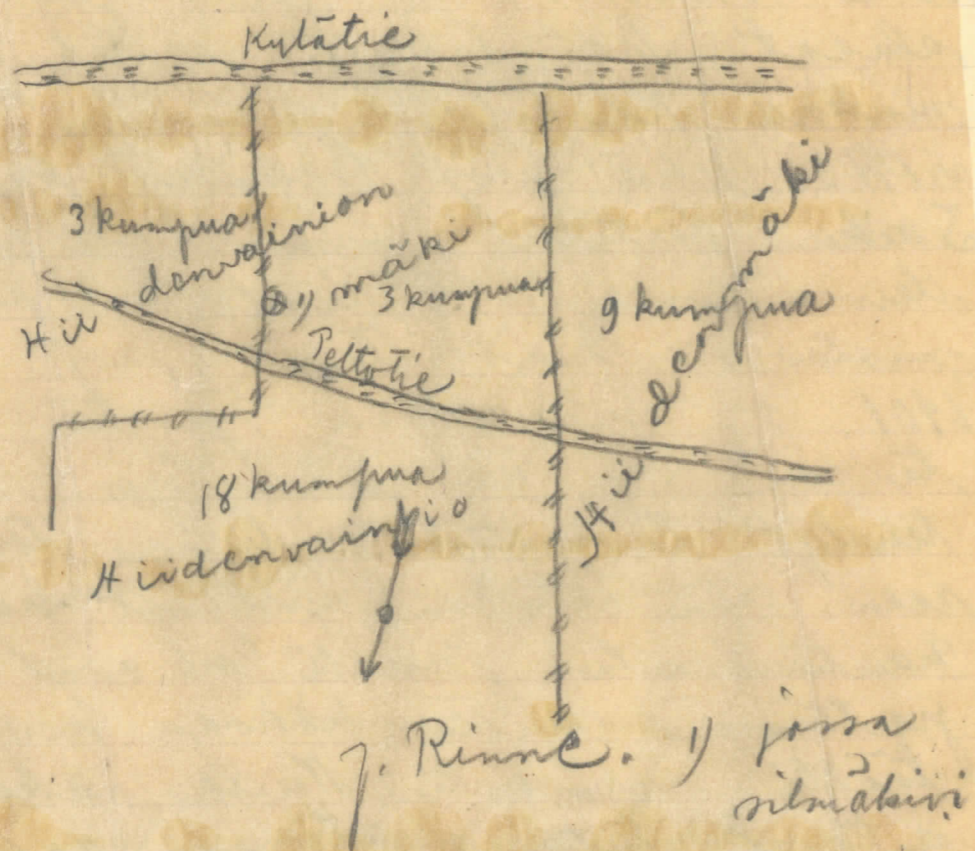 Kylätie
3 kumpua
Hiidenvainion mäki
1)
3 kumpua
9 kumpua
Hiidenmäki
Peltotie
18 kumpua
Hiidenvainio
J. Rinne. 1) jossa
silmäkivi